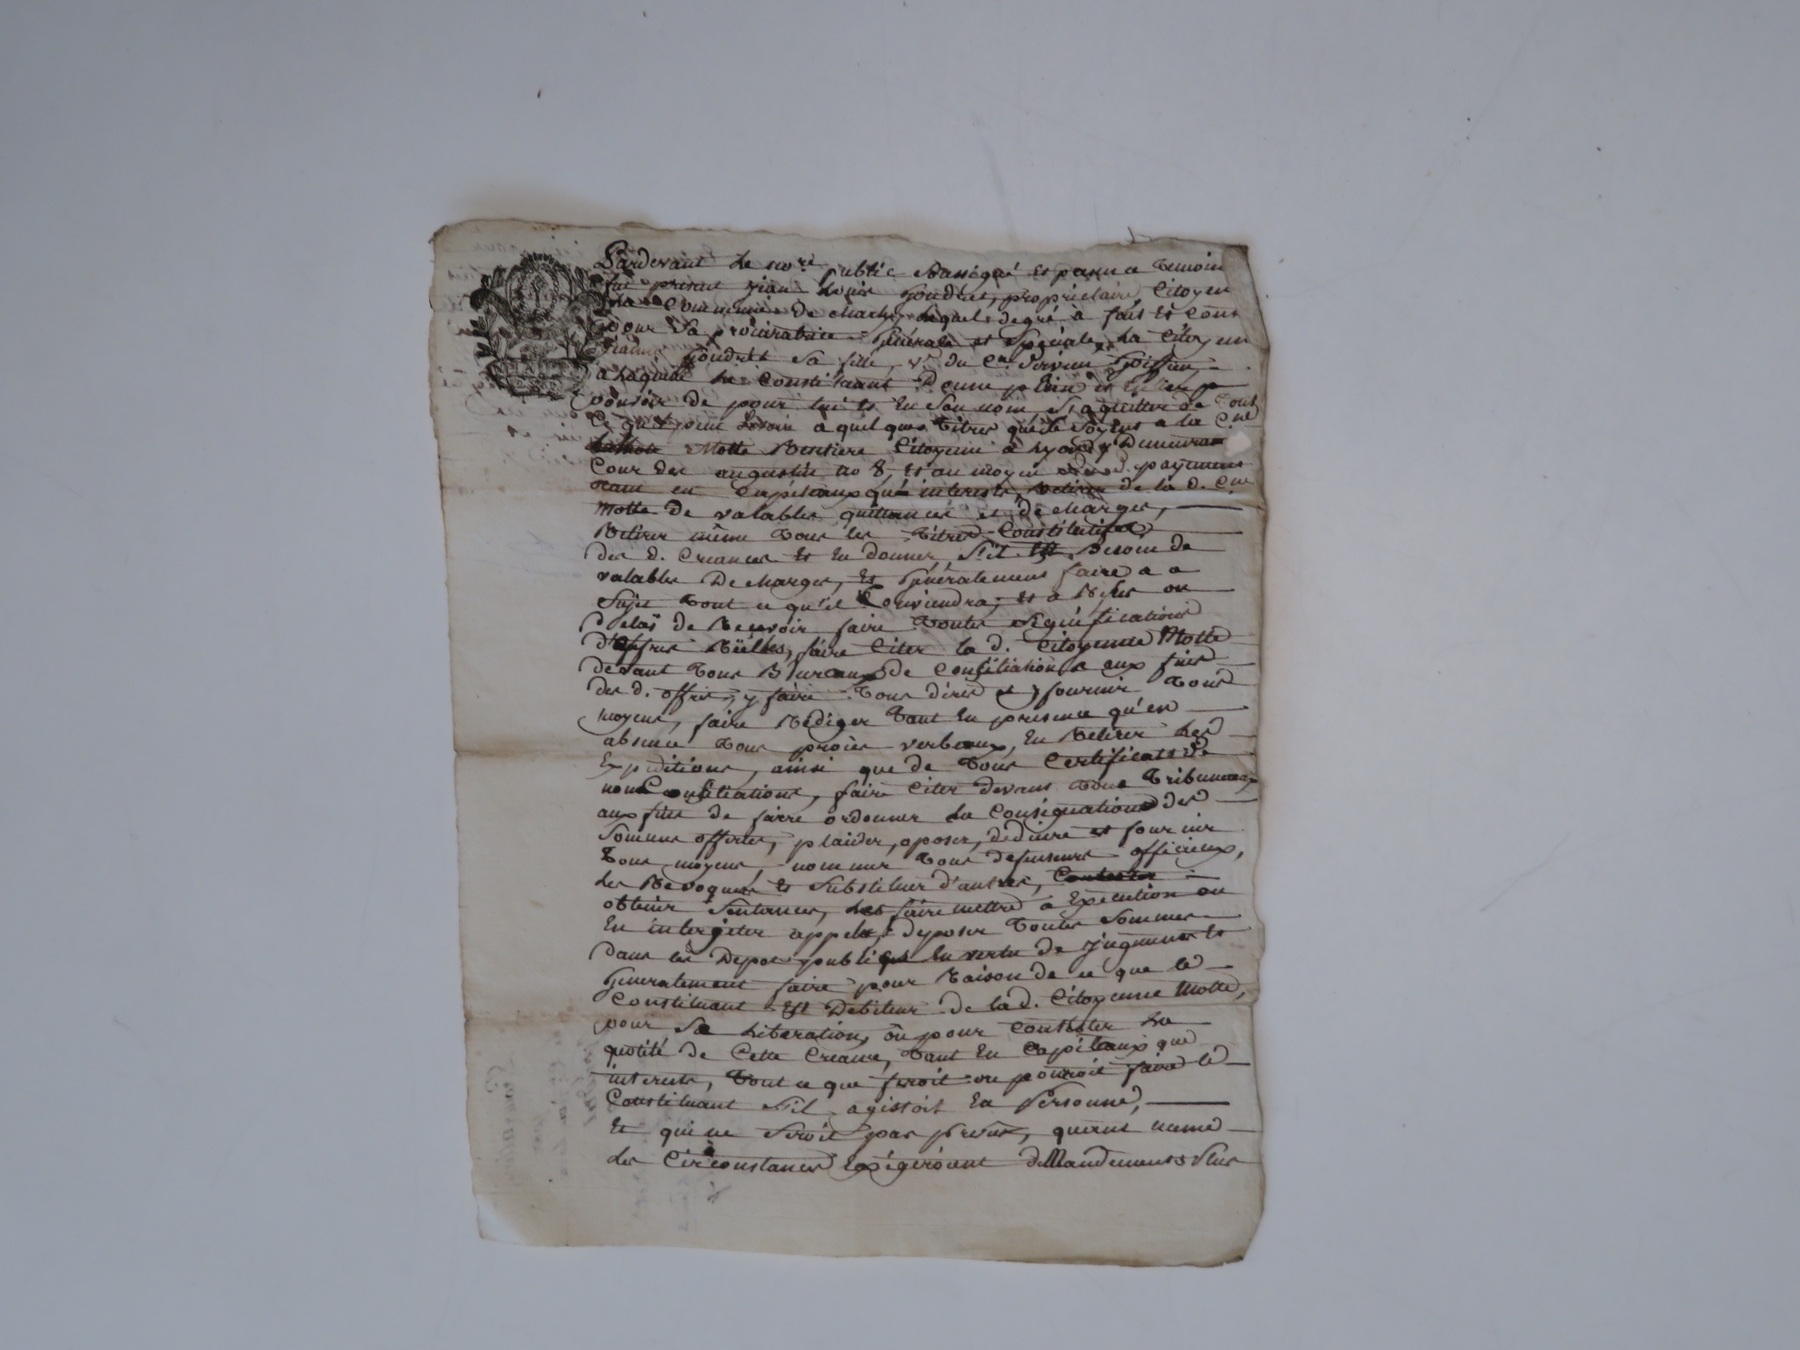 Pardevant Le no.re Public Soussigné et presence Temoin
fut present Jean Louis Goudret, propriétaire, Citoyen
Commune De lequel de gré à fait et const
pour Sa procuratrice Générale et Spéciale, La Citoyene
Goudret Sa fille, V.e du C.en
a Laquelle Le Constituant Donne plein et Entier
pouvoir de pour lui et En Son nom S'aquitter de Tout
Ce qu'il peut devoir a quelques Titres qu'ils Soyent a la C.ne
Motte Rentiere Citoyene à Lyon y Demeurant
Cour des augustins no 8, et au moyen d. payement
tant en Capiteaux qu'interests, Retirer de la d. C.ne
Motte De valables quittances et décharges,
Retirer même Tous les Titres Constitutifs
des d. Creances et En donner, S'il Est Besoin de
valables Décharges, Et Généralement faire a ce
Sujet Tout ce qu'il Conviendra, et a Refus ou
Delai de Recevoir faire Toutes Significations
D'offres Réelles, faire Citer la d. Citoyenne Motte
devant Tous Bureaux de Conciliations aux fins
des d. offres, y faire Tous dires et fournir Tous
moyens, faire Rédiger Tant En presence qu'en
absence Tous procès verbaux, En Retirer Les
Expéditions, ainsi que de Tous Certificats De
non Conciliations, faire Citer devant Tous Tribunaux
aux fins de faire ordonner La Consignation des
Sommes offertes, plaider, oposer, déduire et fournir
Tous moyens, nommer Tous deffenseurs officieux,
les Revoquer et Substituer d'autres,
obtenir Sentences, Les faire mettre a Execution ou
En interjeter appels, deposer Toutes Sommes
Dans les Depots publiques En vertu de jugements Et
Généralement faire pour Raison de ce que le
Constituant Est Debiteur de la d. Citoyenne Motte,
pour Sa Liberation, ou pour Constater La
quotité de Cette Creance, Tant En Capiteaux que
interests, Tout ce que feroit ou pouroit faire le
Constituant S'il agissoit En Personne,
Et qui ne Seroit pas prévue, quand meme
les Circonstances Exigeroient deMandements Plus